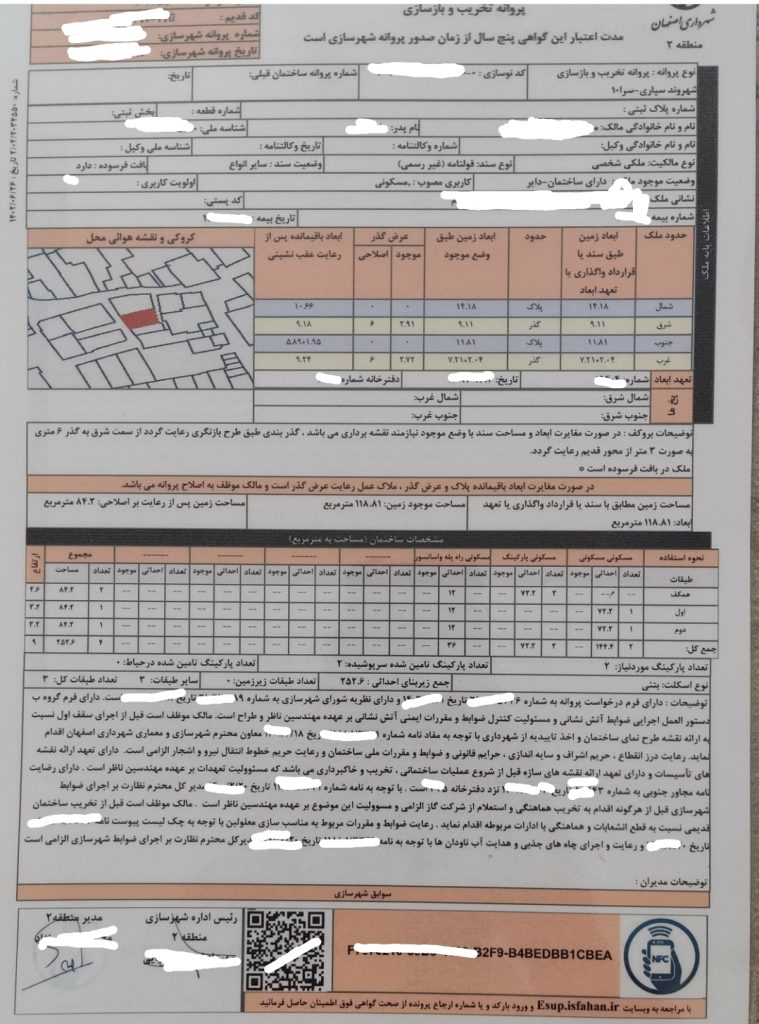 پروانه تخریب و بازسازی
مدت اعتبار این گواهی پنج سال از زمان صدور پروانه شهرسازی است
شهرداری اصفهان
منطقه ۲
کد قدیم :
شماره پروانه شهرسازی :
تاریخ پروانه شهرسازی :
نوع پروانه : پروانه تخریب و بازسازی
کد نوسازی :
شماره پروانه ساختمان قبلی:
تاریخ:
شهروند سپاری-سرا۱۰
شماره پلاک ثبتی :
شماره قطعه :
بخش ثبتی:
نام و نام خانوادگی مالک:
نام پدر:
شناسه ملی:
نام و نام خانوادگی وکیل:
شماره وکالتنامه :
تاریخ وکالتنامه :
شناسه ملی وکیل :
نوع مالکیت: ملکی شخصی
نوع سند: قولنامه (غیر رسمی)
وضعیت سند : سایر انواع
بافت فرسوده : دارد
وضعیت موجود دارای ساختمان-دایر
کاربری مصوب : ,مسکونی
اولویت کاربری :
نشانی ملک
کد پستی:
شماره بیمه
تاریخ بیمه
اطلاعات پایه ملک
حدود ملک
ابعاد زمین طبق سند یا قرارداد واگذاری یا تعهد ابعاد
حدود
ابعاد زمین طبق وضع موجود
عرض گذر
موجود
اصلاحی
ابعاد باقیمانده پس از رعایت عقب نشینی
کروکی و نقشه هوائی محل
شمال ۱۴.۱۸ پلاک ۱۴.۱۸ ۰ ۰ ۱۰.۶۶
شرق ۹.۱۱ گذر ۹.۱۱ ۲.۹۱ ۶ ۹.۱۸
جنوب ۱۱.۸۱ پلاک ۱۱.۸۱ ۰ ۰ ۵.۸۹+۱.۹۵
غرب ۷.۲۱+۲.۰۴ گذر ۷.۲۱+۲.۰۴ ۲.۷۲ ۶ ۹.۲۴
تعهد ابعاد
شماره:
تاریخ:
دفترخانه شماره:
شمال شرق:
شمال غرب:
جنوب شرق:
جنوب غرب:
توضیحات بروکف : در صورت مغایرت ابعاد و مساحت سند با وضع موجود نیازمند نقشه برداری می باشد , گذر بندی طبق طرح بازنگری رعایت گردد از سمت شرق به گذر ۶ متری
به صورت ۳ متر از محور قدیم رعایت گردد.
ملک در بافت فرسوده است *
در صورت مغایرت ابعاد باقیمانده پلاک و عرض گذر ، ملاک عمل رعایت عرض گذر است و مالک موظف به اصلاح پروانه می باشد.
مساحت زمین مطابق با سند یا قرارداد واگذاری یا تعهد
ابعاد: ۱۱۸.۸۱ مترمربع
مساحت موجود زمین: ۱۱۸.۸۱ مترمربع
مساحت زمین پس از رعایت بر اصلاحی: ۸۴.۲ مترمربع
مشخصات ساختمان (مساحت به مترمربع)
نحوه استفاده
مسکونی مسکونی
مسکونی پارکینگ
مسکونی راه پله واسانسور
------
------
------
------
مجموع
ارتفاع
طبقات
تعداد احداثی موجود
تعداد احداثی موجود
تعداد احداثی موجود
تعداد احداثی موجود
تعداد احداثی موجود
تعداد احداثی موجود
تعداد احداثی موجود
تعداد مساحت
همکف -- -- -- ۲ ۷۲.۲ -- -- ۱۲ -- -- -- -- -- -- -- -- -- -- -- -- -- ۲ ۸۴.۲ ۲.۶
اول ۱ ۷۲.۲ -- -- -- -- -- ۱۲ -- -- -- -- -- -- -- -- -- -- -- -- -- ۱ ۸۴.۲ ۳.۲
دوم ۱ ۷۲.۲ -- -- -- -- -- ۱۲ -- -- -- -- -- -- -- -- -- -- -- -- -- ۱ ۸۴.۲ ۳.۲
جمع کل: ۲ ۱۴۴.۴ -- ۲ ۷۲.۲ -- -- ۳۶ -- -- -- -- -- -- -- -- -- -- -- -- -- ۴ ۲۵۲.۶ ۹
تعداد پارکینگ موردنیاز: ۲
تعداد پارکینگ تامین شده سرپوشیده: ۲
تعداد پارکینگ تامین شده درحیاط: ۰
نوع اسکلت: بتنی
جمع زیربنای احداثی : ۲۵۲.۶
تعداد طبقات زیرزمین: ۰
سایر طبقات: ۳
تعداد طبقات کل: ۳
توضیحات : دارای فرم درخواست پروانه به شماره تاریخ است. و دارای نظریه شورای شهرسازی به شماره تاریخ است. دارای فرم گروه ب
دستور العمل اجرایی ضوابط آتش نشانی و مسئولیت کنترل ضوابط و مقررات ایمنی آتش نشانی بر عهده مهندسین ناظر و طراح است. مالک موظف است قبل از اجرای سقف اول نسبت
به ارائه نقشه طرح نمای ساختمان و اخذ تاییدیه از شهرداری با توجه به مفاد نامه شماره تاریخ معاون محترم شهرسازی و معماری شهرداری اصفهان اقدام
نماید. رعایت درز انقطاع ، حریم اشراف و سایه اندازی ، حرایم قانونی و ضوابط و مقررات ملی ساختمان و رعایت حریم خطوط انتقال نیرو و اشجار الزامی است. دارای تعهد ارائه نقشه
های تأسیسات و دارای تعهد ارائه نقشه های سازه قبل از شروع عملیات ساختمانی ، تخریب و خاکبرداری می باشد که مسئوولیت تعهدات بر عهده مهندسین ناظر است. دارای رضایت
نامه مجاور جنوبی به شماره تاریخ نزد دفترخانه است. با توجه به نامه شماره تاریخ مدیر کل محترم نظارت بر اجرای ضوابط
شهرسازی قبل از هرگونه اقدام به تخریب هماهنگی و استعلام از شرکت گاز الزامی و مسوولیت این موضوع بر عهده مهندسین ناظر است . مالک موظف است قبل از تخریب ساختمان
قدیمی نسبت به قطع انشعابات و هماهنگی با ادارات مربوطه اقدام نماید . رعایت ضوابط و مقررات مربوط به مناسب سازی معلولین با توجه به چک لیست پیوست نامه
تاریخ و رعایت و اجرای چاه های جذبی و هدایت آب ناودان ها با توجه به نامه تاریخ مدیرکل محترم نظارت بر اجرای ضوابط شهرسازی الزامی است
توضیحات مدیران :
سوابق شهرسازی
مدیر منطقه ۲
رئیس اداره شهرسازی
منطقه ۲
B2F9-B4BEDBB1CBEA
NFC
با مراجعه به وبسایت Esup.isfahan.ir و ورود بارکد و یا شماره ارجاع پرونده از صحت گواهی فوق اطمینان حاصل فرمائید